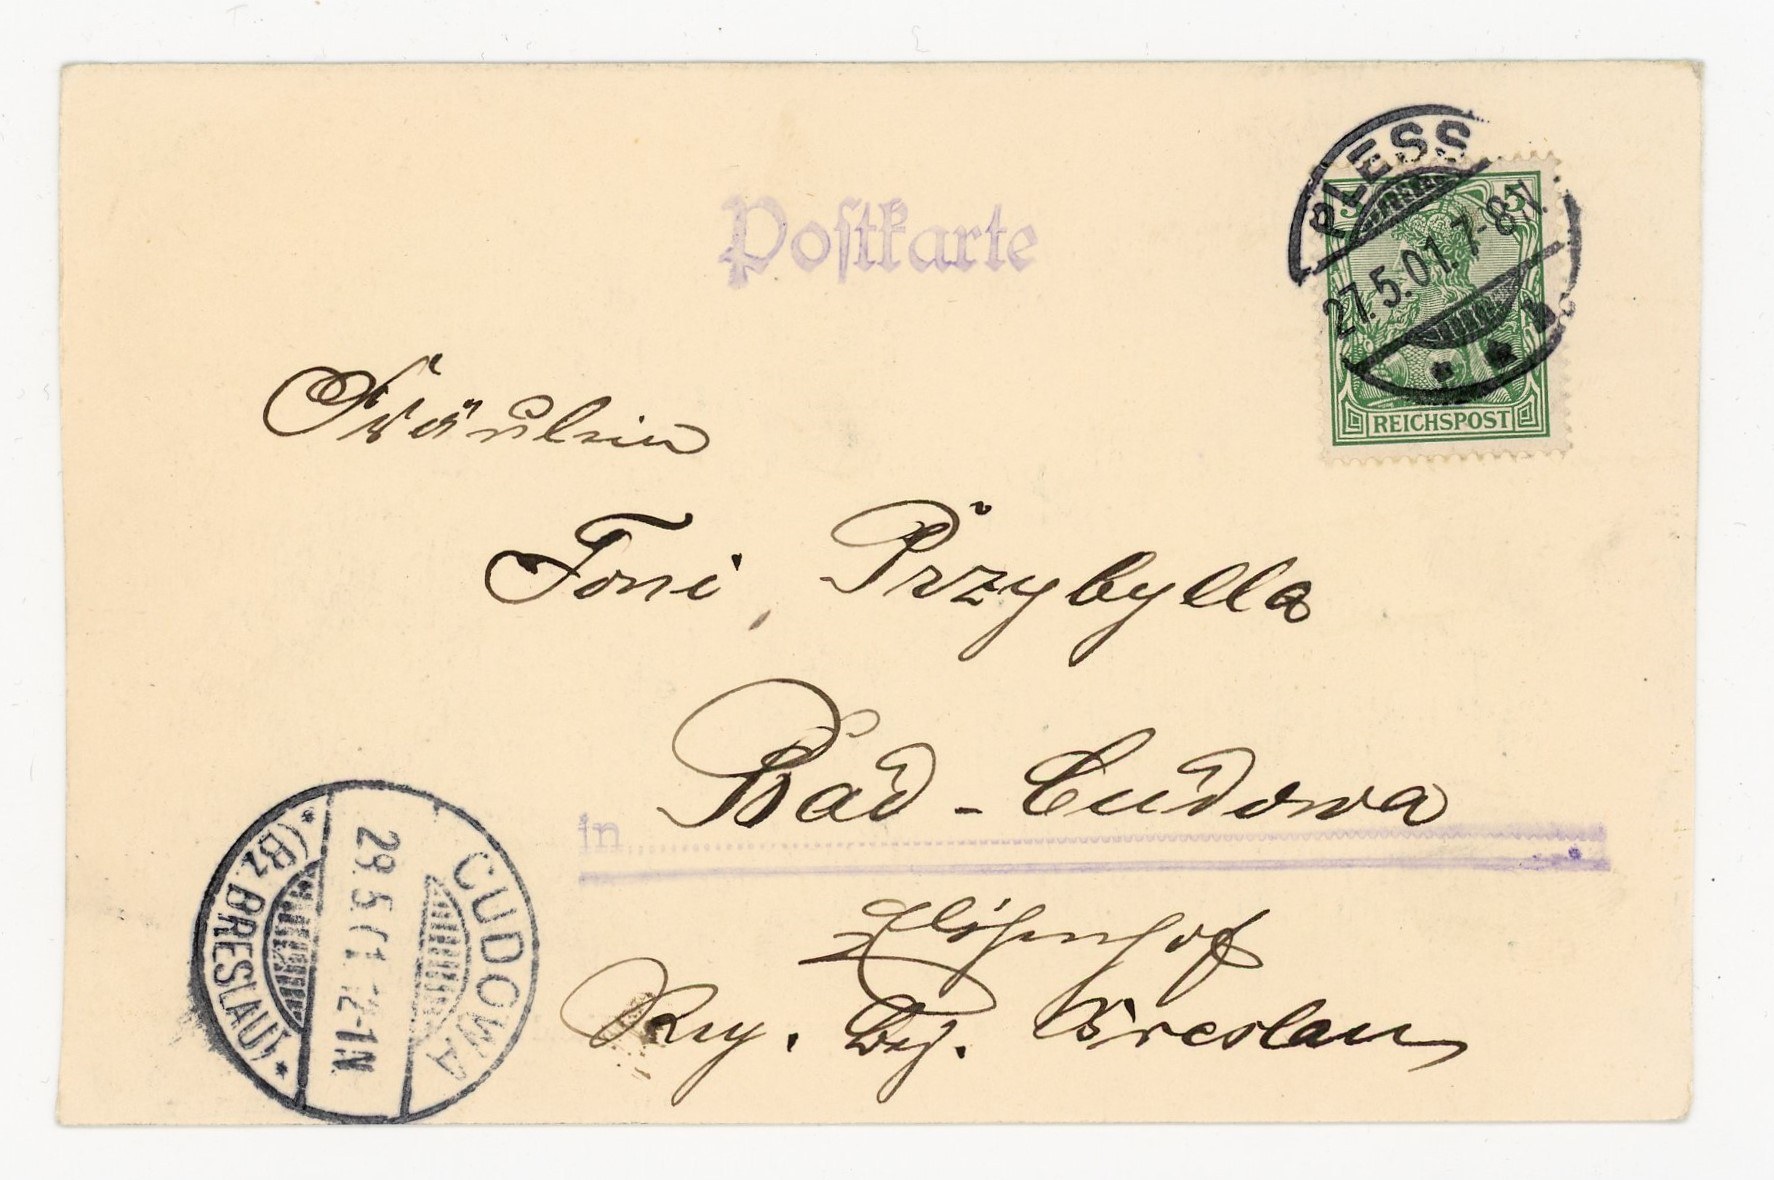 Postkarte
PLESS
27.5.01.7-8N.
5
REICHSPOST
Fräulein
Toni Przybylla
Bad-Cudowa
in
Reg. Bez. Breslau
CUDOWA
12-1N
(Bz. BRESLAU)